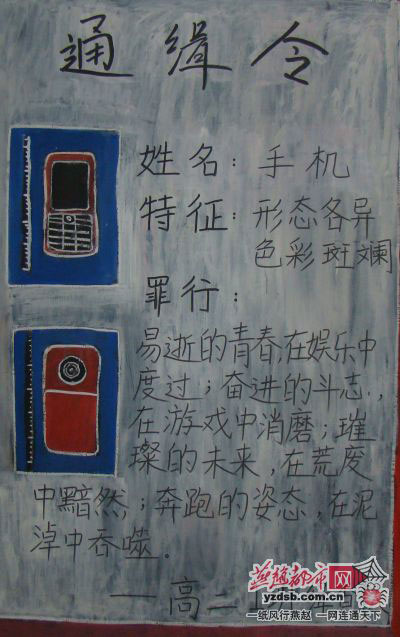 通缉令
姓名：手机
特征：形态各异
色彩斑斓
罪行：
易逝的青春,在娱乐中
度过；奋进的斗志,
在游戏中消磨；璀
璨的未来,在荒废
中黯然；奔跑的姿态,在泥
淖中吞噬.
一高二
燕赵都市网
yzdsb.com.cn
一纸风行燕赵 一网连通天下